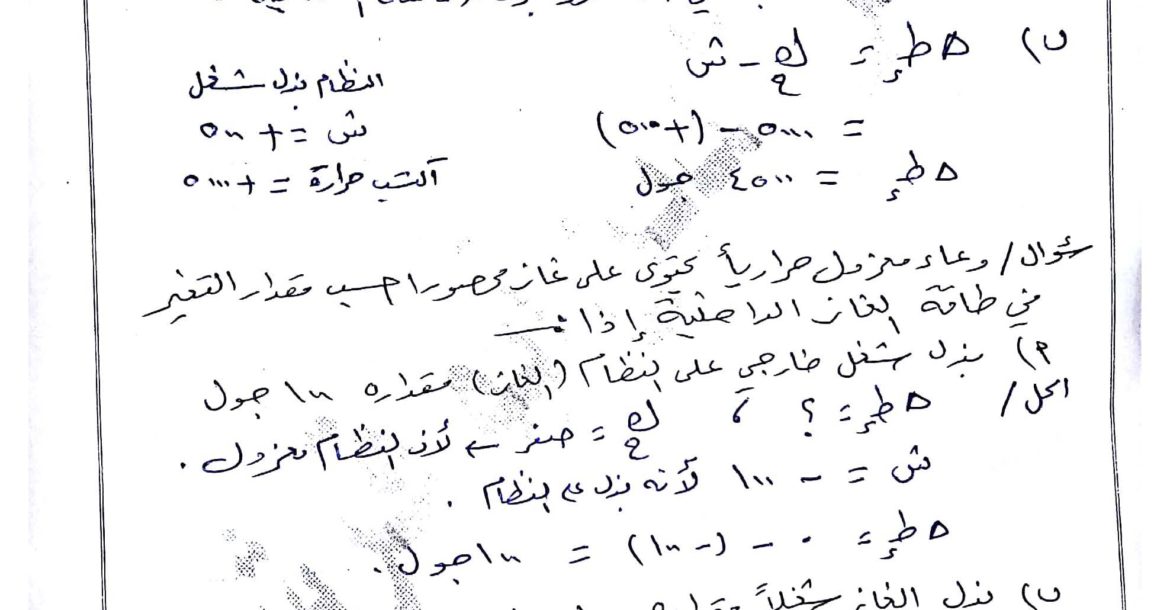 ب) Δ ط إ = كح - ش
النظام بذل شغل
= ٥٠٠٠ - (+٥٠٠)
ش = + ٥٠٠
Δ ط إ = ٤٥٠٠ جول
اكتسب حرارة = + ٥٠٠٠
سؤال / وعاء معزول حرارياً يحتوي على غاز محصور احسب مقدار التغير
في طاقة الغاز الداخلية إذا :ـ
أ) بذل شغل خارجي على النظام (الغاز) مقداره ١٠٠ جول
الحل / Δ ط إ = ؟ ، كح = صفر ← لأن النظام معزول .
ش = - ١٠٠ لأنه بذل على النظام .
Δ ط إ = ٠ - (-١٠٠) = ١٠٠ جول .
ب) بذل الغاز شغلاً